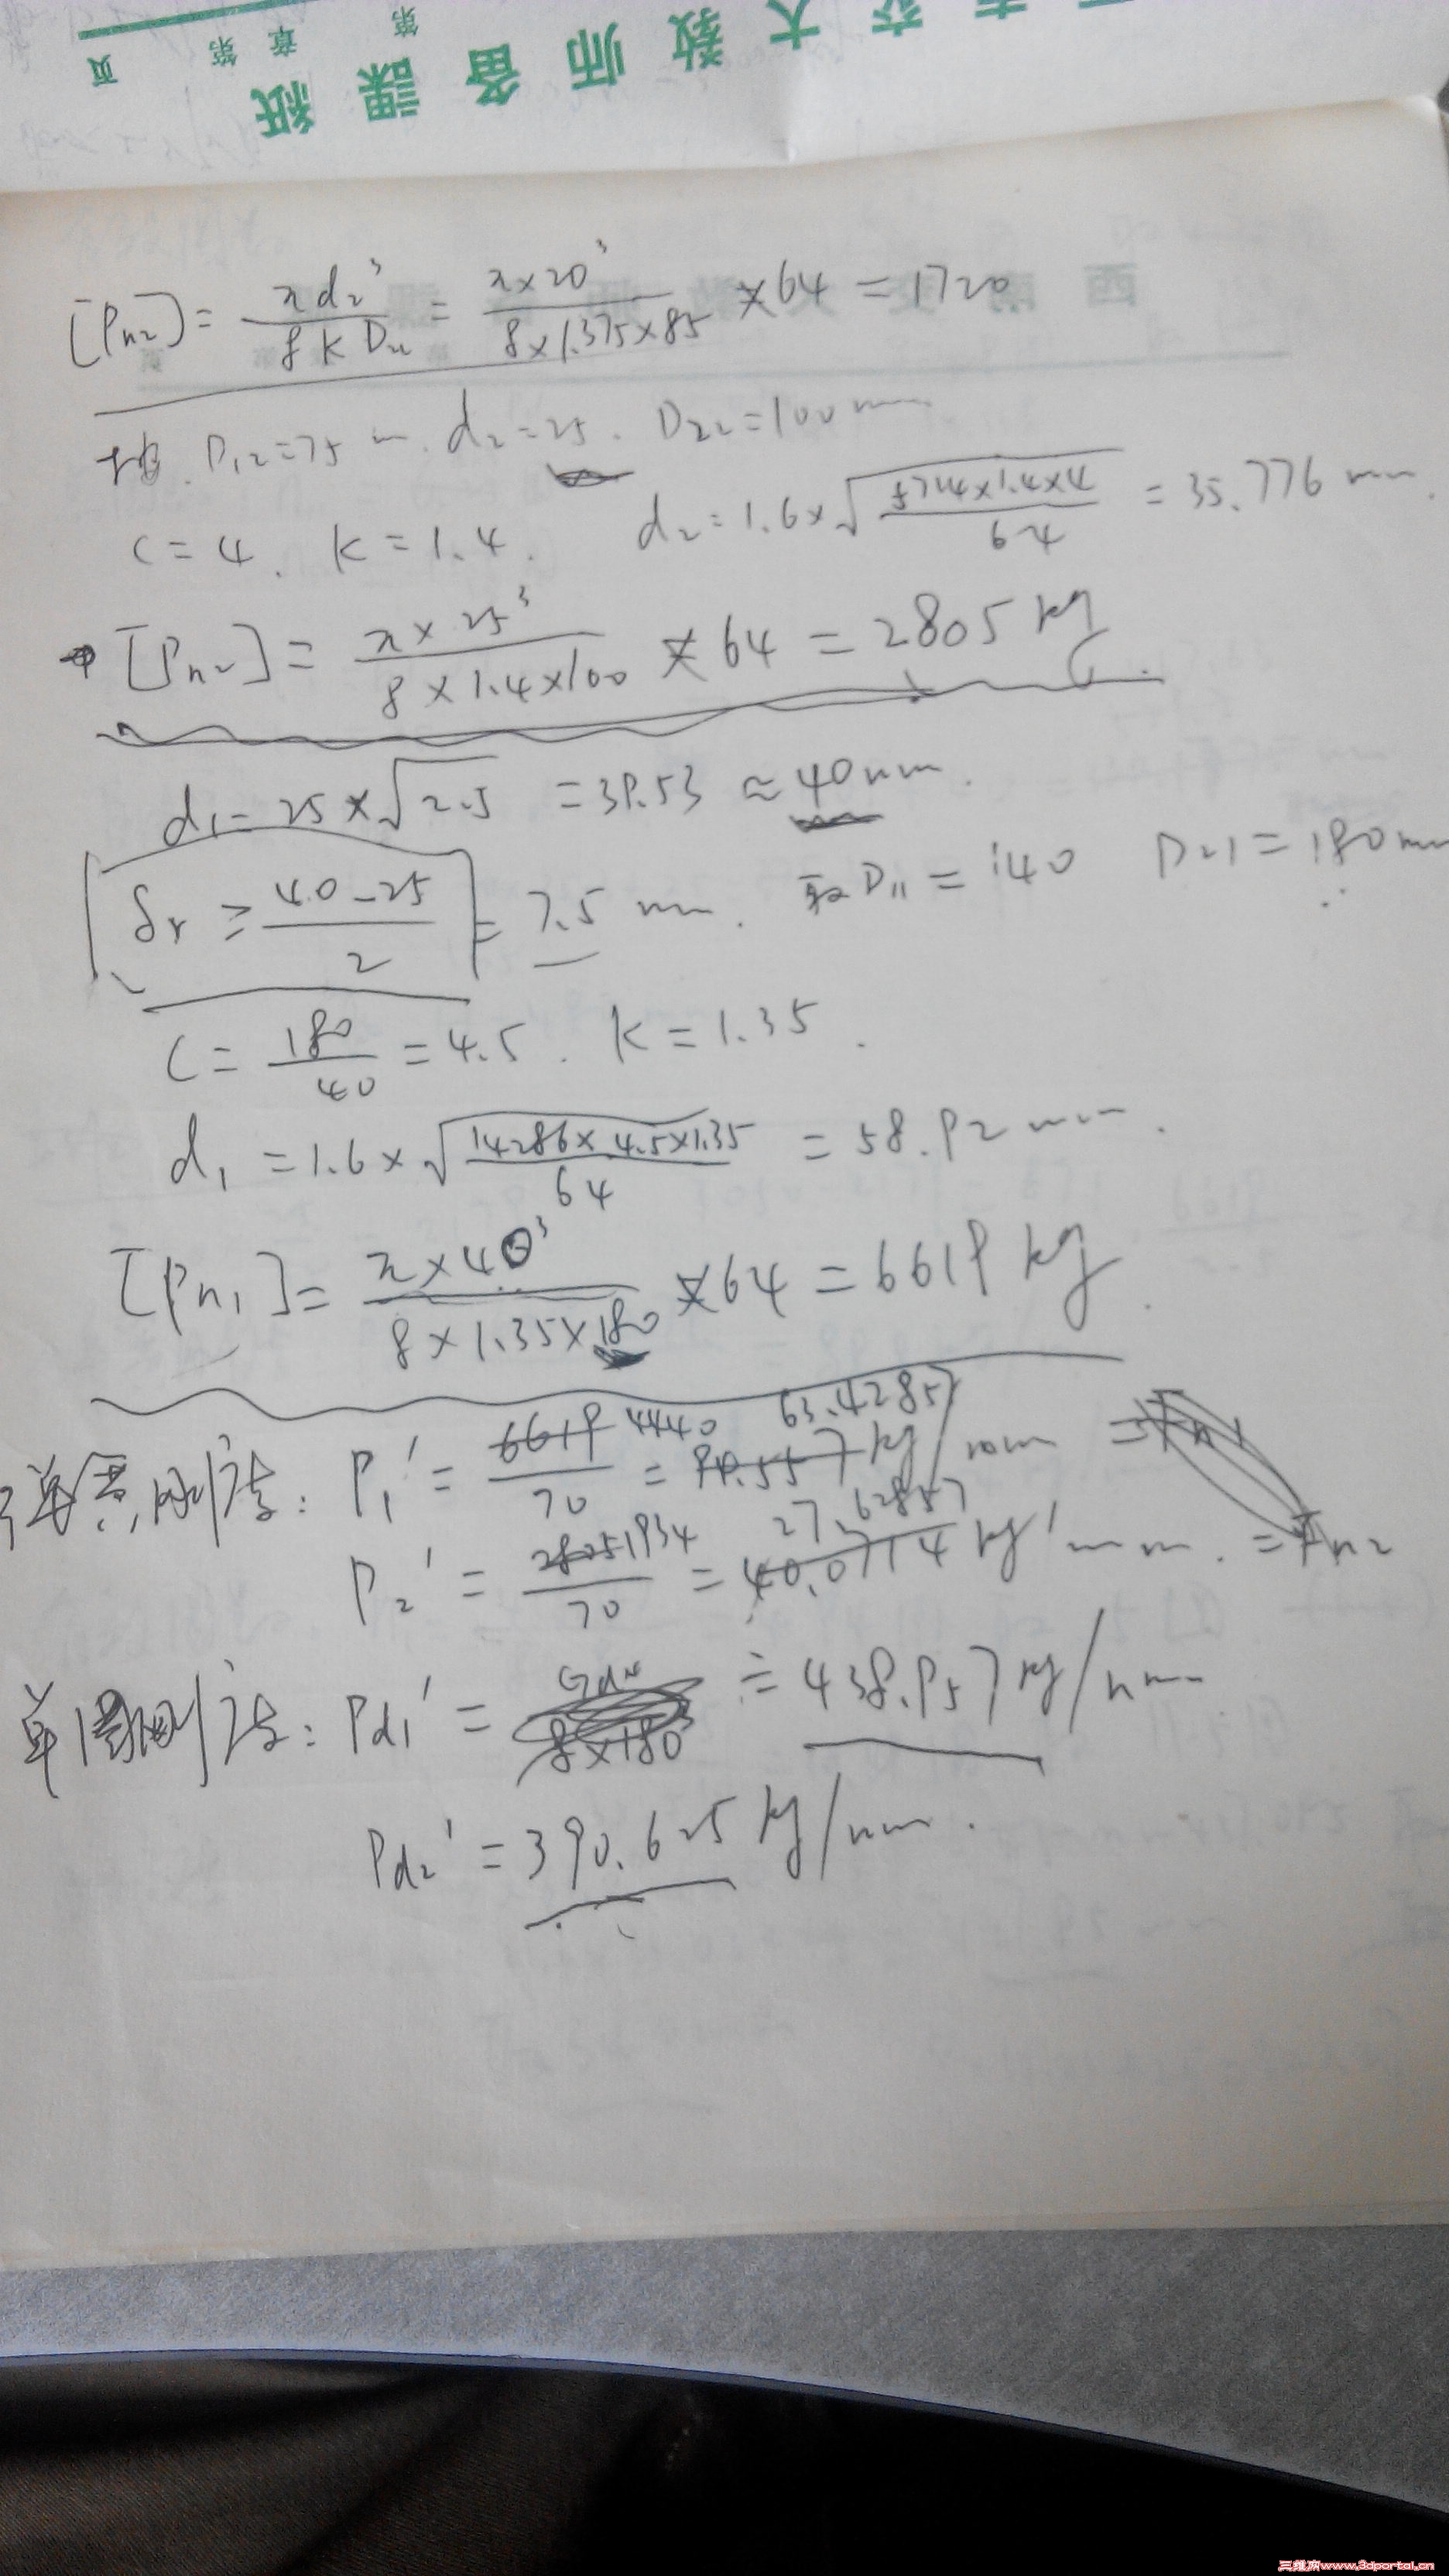 交大教师备課紙
第 章 第 頁
[Pn2] = πd2³ / 8KD22 = π×20³ / 8×1.375×85 ×64 = 1720
D12=75 mm. d2=25. D22=100mm
C=4. K=1.4. d2=1.6×√(5714×1.4×4 / 64) = 35.776 mm.
[Pn2] = π×25³ / 8×1.4×100 ×64 = 2805 kg.
d1=25×√2.5 = 39.53 ≈ 40mm.
δr ≥ 40-25 / 2 = 7.5 mm. 取D11=140 D21=180mm
C = 180 / 40 = 4.5. K=1.35.
d1 = 1.6×√(14286×4.5×1.35 / 64) = 58.92 mm.
[Pn1] = π×40³ / 8×1.35×180 ×64 = 6619 kg.
弹簧刚度: P1' = 6619 4440 / 70 = 94.557 63.42857 kg/mm
P2' = 2805 1934 / 70 = 40.0714 27.62857 kg/mm. = Fn2
单圈刚度: Pd1' = Gd⁴ / 8×180³ = 438.957 kg/mm
Pd2' = 390.625 kg/mm.
三维网www.3dportal.cn